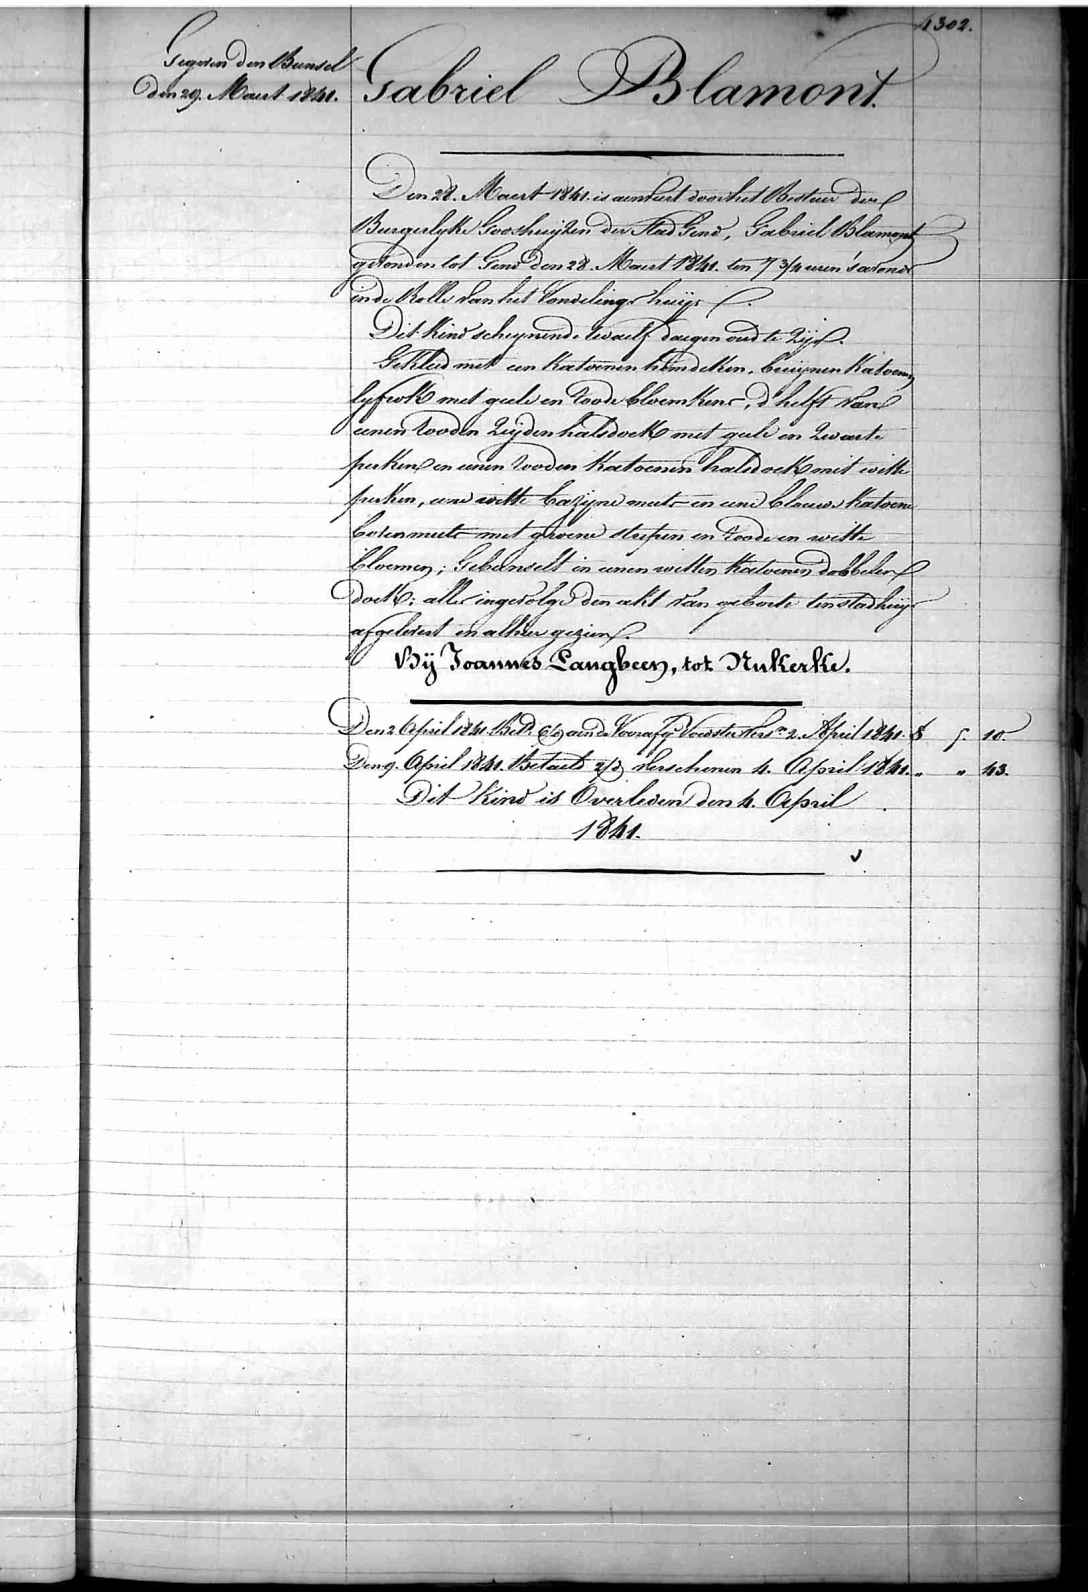 1302.
Gegeven den Bunsel
den 29. Maert 1841.
Gabriel Blamont.
Den 28. Maert 1841. is aenveert door het Bestuer der
Burgerlyke Godshuijzen der Stad Gend, Gabriel Blamont
gevonden tot Gend den 28. Maert 1841. ten 7 3/4 uren 's avonds
in de Rolle van het Vondelingshuijs.
Dit Kind schynende twaelf daegen oud te zijn.
Gekleed met een Katoenen hemdeken, bruijnen Katoenen
lyfrok met geele en roode bloemkens, d'helft van
eenen rooden Zeijden halsdoek met geele en Zwarte
perken en eenen rooden Katoenen halsdoek met witte
perken, eene witte bazijne muts en eene blauwe Katoene
bovenmuts met groene strepen en roode en witte
bloemen; Gebunselt in eenen witten Katoenen dobbelen
doek; alles ingevolge den akt van geboorte ten stadhuijs
afgelevert en alhier gezien.
Bij Joannes Langbeen, tot Nukerke.
Den 2 April 1841. Bet. aen de Voorafg. Voedster 2. April 1841. 5. 10.
Den 9. April 1841. Betaelt verschenen 4. April 1841. " " 43.
Dit Kind is Overleden den 4. April
1841.